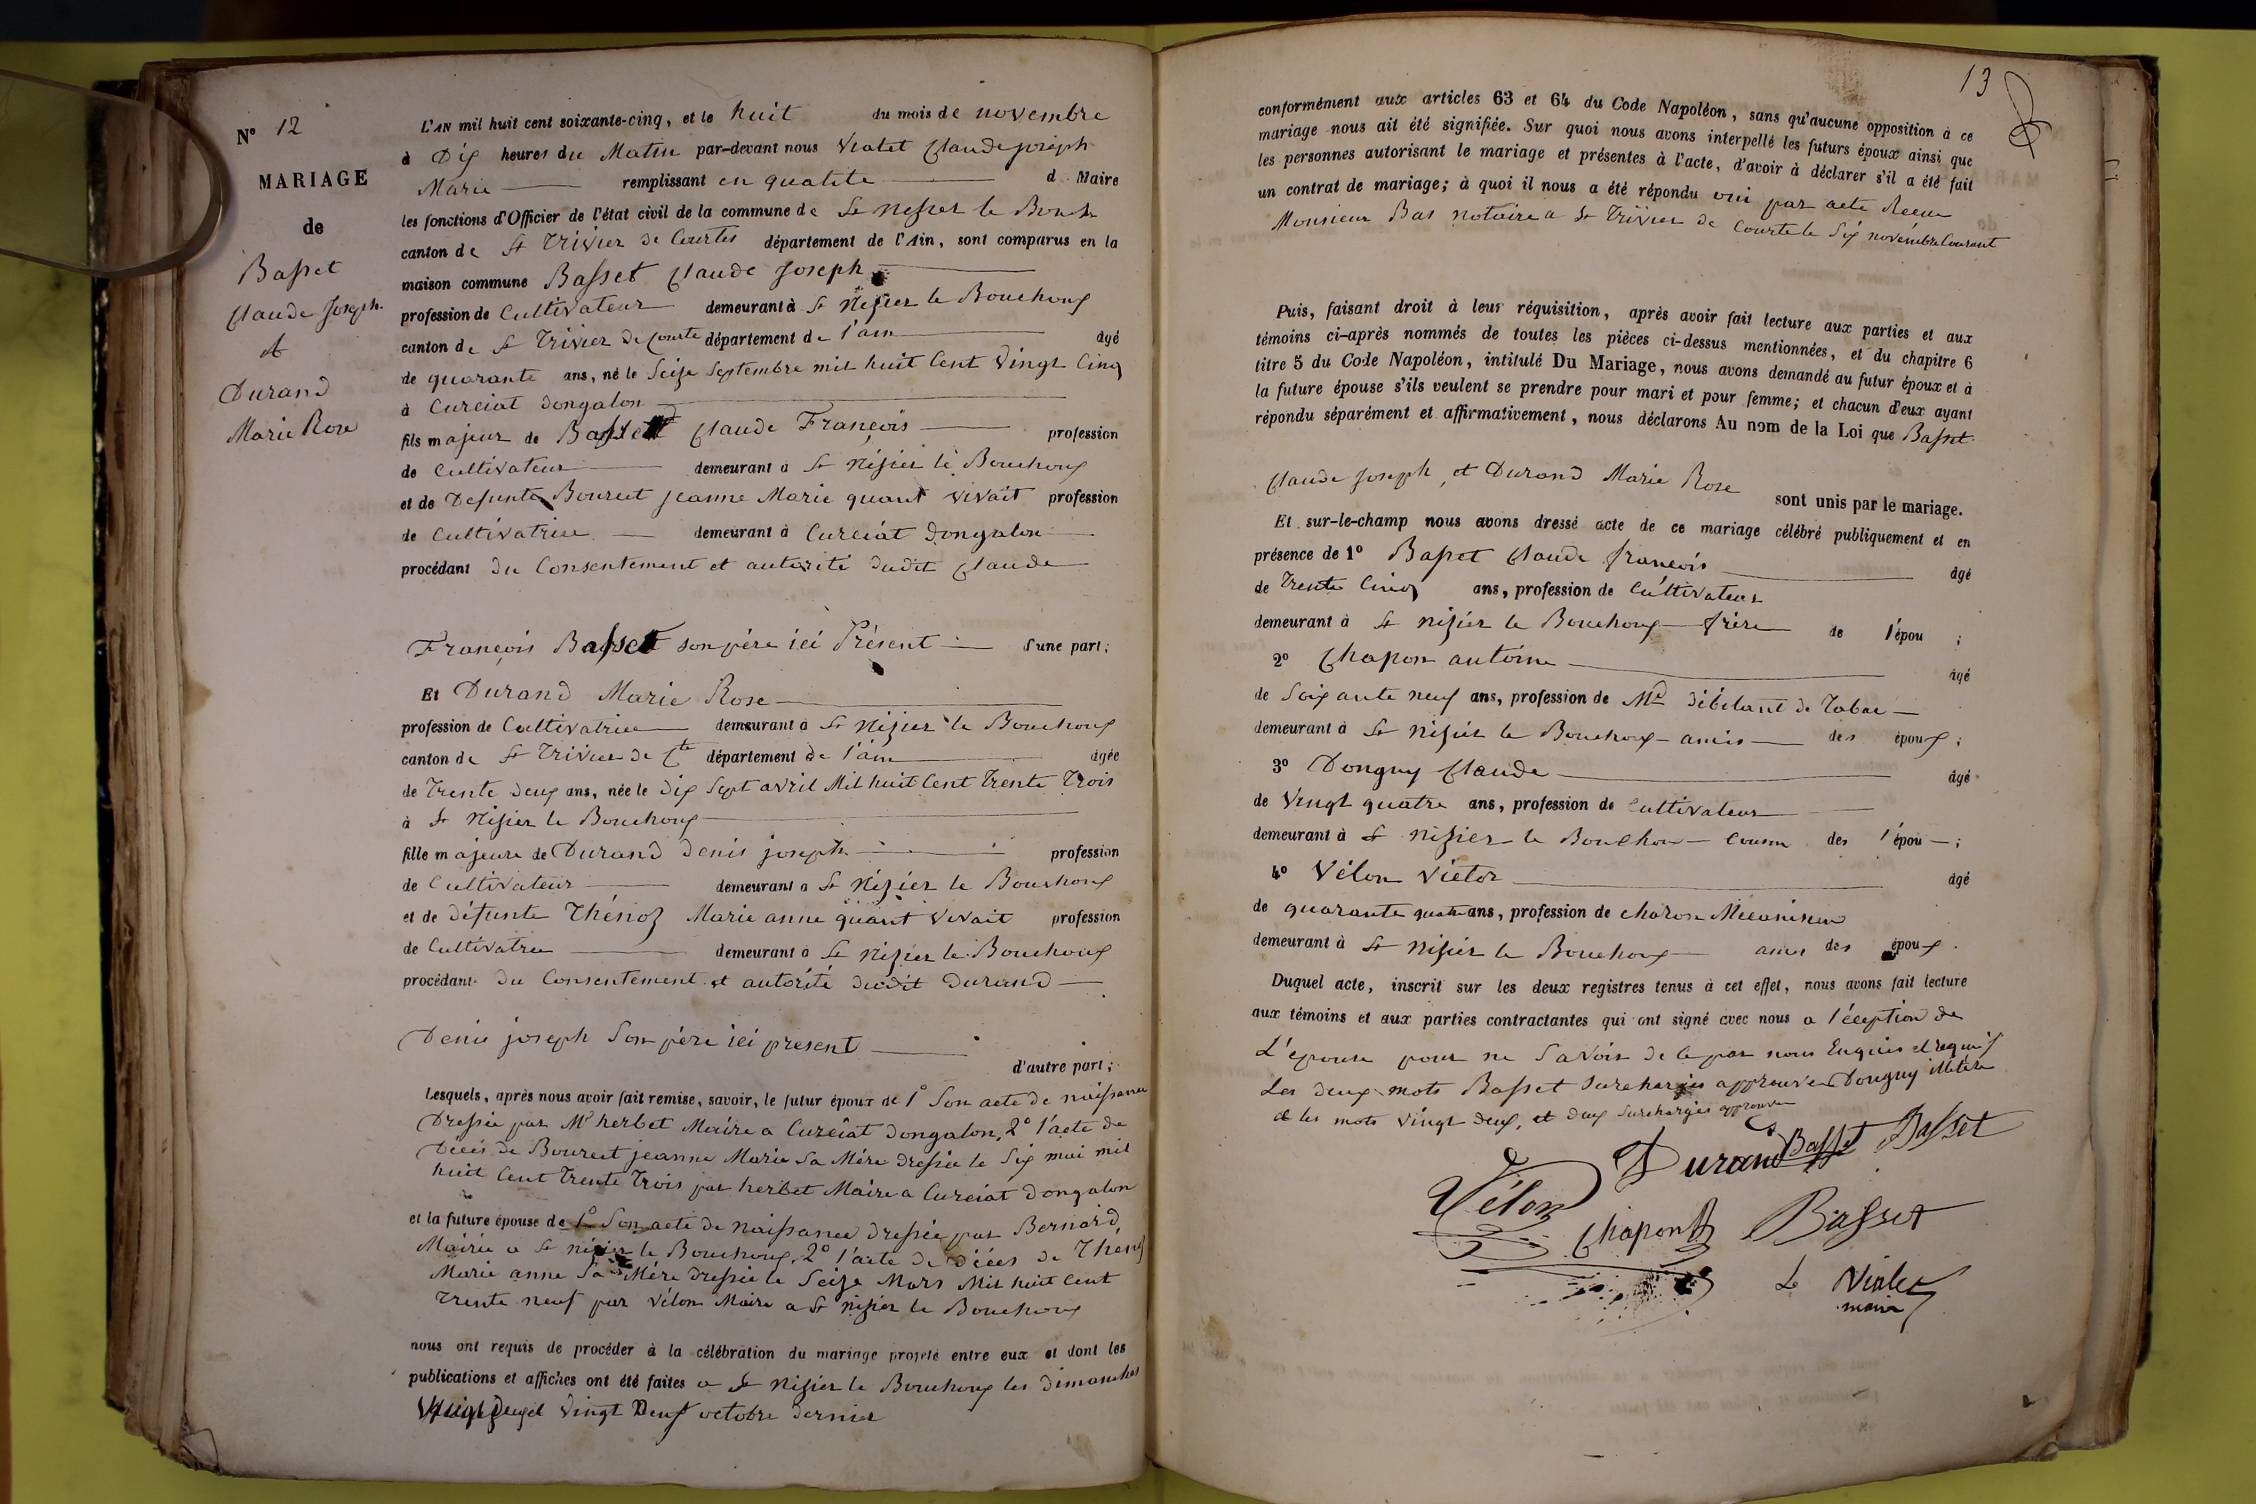 N° 12
MARIAGE
de
Basset
Claude Joseph
et
Durand
Marie Rose
L'AN mil huit cent soixante-cinq, et le huit du mois de novembre
à Dix heures du Matin par-devant nous Violet Claude joseph
Marie remplissant en qualite d Maire
les fonctions d'Officier de l'état civil de la commune de St nizier le Bouch
canton de St Trivier de Courtes département de l'Ain, sont comparus en la
maison commune Basset Claude Joseph
profession de Cultivateur demeurant à St Nizier le Bouchoux
canton de St Trivier de Courte département de l'ain âgé
de quarante ans, né le Seize Septembre mil huit Cent Vingt Cinq
à Curciat dongalon
fils majeur de Basset Claude François profession
de Cultivateur demeurant à St Nizier le Bouchoux
et de Defunte Bourcet jeanne Marie quant vivait profession
de Cultivatrice demeurant à Curciat dongalon
procédant du Consentement et autorité dudit Claude
François Basset son père ici Présent d'une part;
Et Durand Marie Rose
profession de Cultivatrice demeurant à St Nizier le Bouchoux
canton de St Trivier de Cte département de l'ain âgée
de Trente deux ans, née le dix Sept avril Mil huit Cent Trente Trois
à St Nizier le Bouchoux
fille majeure de Durand denis joseph profession
de Cultivateur demeurant à St Nizier le Bouchoux
et de défunte Thénoz Marie anne quant vivait profession
de Cultivatrice demeurant à St Nizier le Bouchoux
procédant du Consentement et autorité dudit Durand
Denis joseph Son père ici present
d'autre part;
Lesquels, après nous avoir fait remise, savoir, le futur époux de 1° Son acte de naissance
Dressée par Mr herbet Maire a Curciat dongalon, 2° l'acte de
Décès de Bourcet jeanne Marie Sa Mére dressée le Six mai mil
huit Cent Trente Trois par herbet Maire a Curciat Dongalon
et la future épouse de 1° Son acte de Naissance dressée par Bernard,
Mairie a St nizier le Bouchoux, 2° l'acte de décés de Thénoz
Marie anne Sa Mére dressée le Seize Mars Mil huit Cent
Trente neuf par Vélon Maire a St nizier le Bouchoux
nous ont requis de procéder à la célébration du mariage projeté entre eux et dont les
publications et affiches ont été faites a St Nizier le Bouchoux les dimanches
Vingt Deux et Vingt Neuf octobre dernier
13
conformément aux articles 63 et 64 du Code Napoléon, sans qu'aucune opposition à ce
mariage nous ait été signifiée. Sur quoi nous avons interpellé les futurs époux ainsi que
les personnes autorisant le mariage et présentes à l'acte, d'avoir à déclarer s'il a été fait
un contrat de mariage; à quoi il nous a été répondu oui par acte Recue
Monsieur Bas notaire a St Trivier de Courte le Six novembre Courant
Puis, faisant droit à leur réquisition, après avoir fait lecture aux parties et aux
témoins ci-après nommés de toutes les pièces ci-dessus mentionnées, et du chapitre 6
titre 5 du Code Napoléon, intitulé Du Mariage, nous avons demandé au futur époux et à
la future épouse s'ils veulent se prendre pour mari et pour femme; et chacun d'eux ayant
répondu séparément et affirmativement, nous déclarons Au nom de la Loi que Basset
Claude Joseph, et Durand Marie Rose sont unis par le mariage.
Et sur-le-champ nous avons dressé acte de ce mariage célébré publiquement et en
présence de 1° Basset Claude françois âgé
de Trente Cinq ans, profession de Cultivateur
demeurant à St nizier le Bouchoux frère de l'épou ;
2° Chapon antoine âgé
de Soixante neuf ans, profession de Md débitant de Tabac
demeurant à St nizier le Bouchoux amis des époux ;
3° Dongny Claude âgé
de Vingt quatre ans, profession de Cultivateur
demeurant à St nizier le Bouchou Cousin des l'épou ;
4° Vélon Victor âgé
de quarante quatre ans, profession de charon Mecanisien
demeurant à St nizier le Bouchoux amis des époux.
Duquel acte, inscrit sur les deux registres tenus à cet effet, nous avons fait lecture
aux témoins et aux parties contractantes qui ont signé avec nous a l'éception de
L'epouse pour ne Savoir de ce par nous Enquis et requis
Les deux mots Basset Surchargés approuvés Dongny illétéré
et les mots Vingt deux, et deux Surchargés approuvés
Durand Basset Basset
Vélon
Chapon Basset
Le Violet
maire